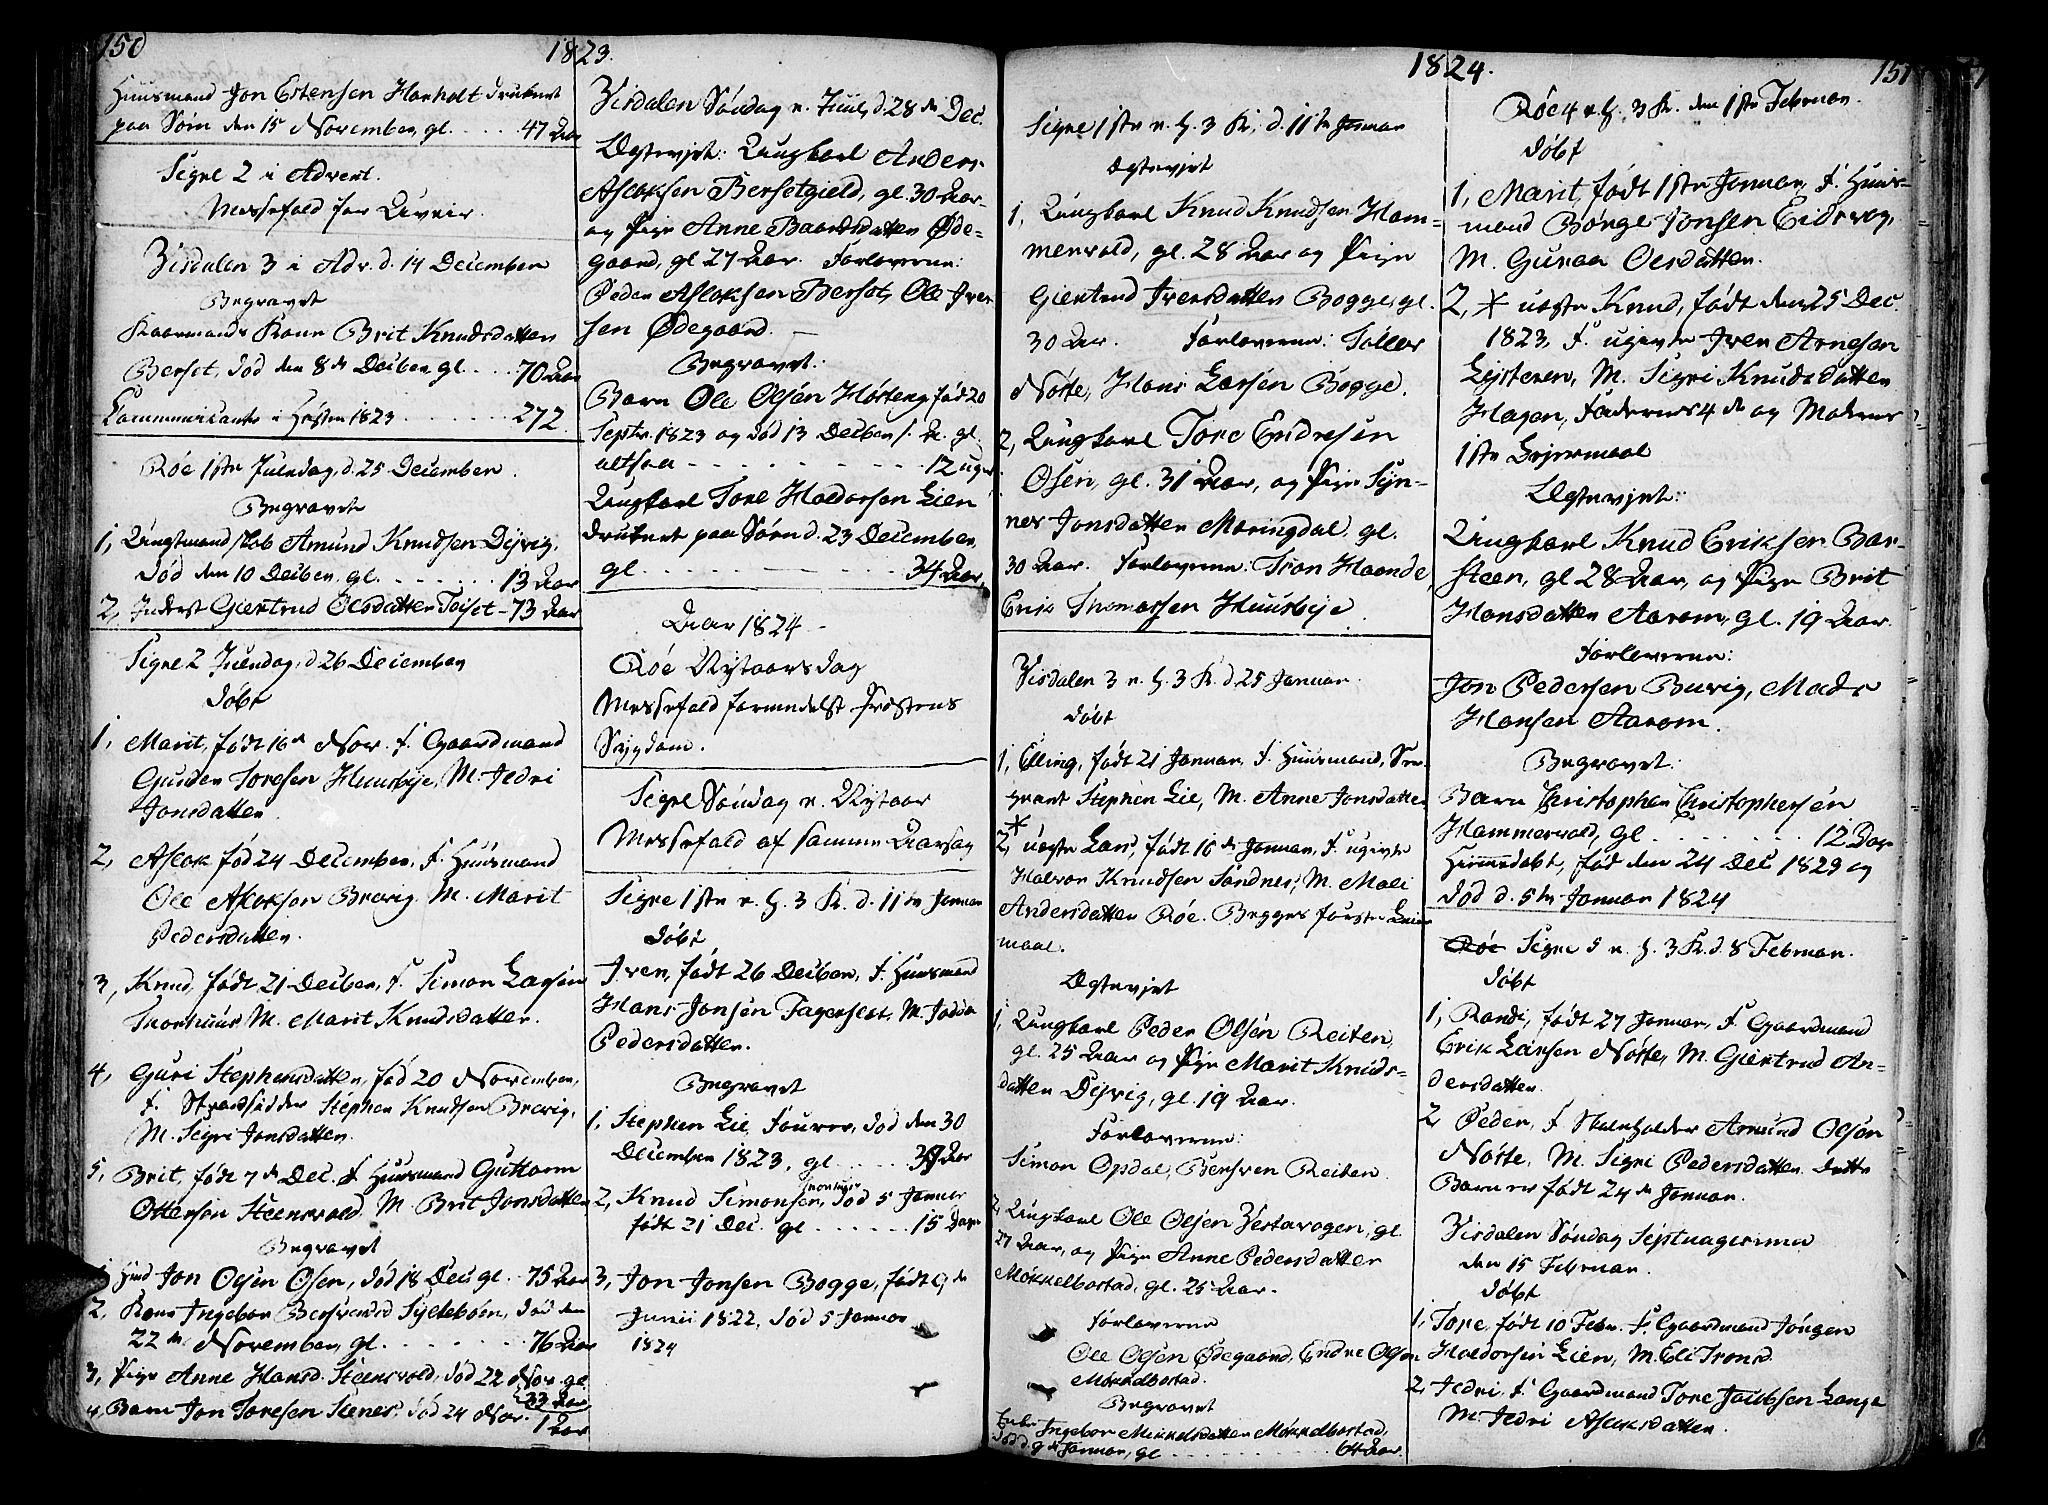 150
1823.
Huusmand Jon Estensen Harholt druknet
paa Søen den 15 November, gl. .... 47 Aar
Signe 2 i Advent.
Messefald for Uveir.
Visdalen 3 i Adv. d. 14 December
Begravet
Kaarmands Kone Brit Knudsdatter
Berset, død den 8de Decbr, gl .... 70 Aar
Communicanter i Høsten 1823 ........ 272.
Røe 1ste Juledag, d. 25 December.
Begravet
1, Ungmand Amund Knudsen Dijrvig,
død den 10 Decbr, gl. ...... 13 Aar
2, Inderst Giertrud Olsdatter Toset - 73 Aar
Signe 2 Juledag, d 26 December
Døbt
1, Marit, født 16de Nov. F. Gaardmand
Gunder Toresen Huusbye, M. Jedri
Jonsdatter.
2, Aslak fød 24 December, F. Huusmand
Ole Aslaksen Brevig M. Marit
Pedersdatter.
3, Knud, født 21 Decber, F. Simon Larsen
Snorhuus M. Marit Knudsdatter.
4, Guri Stephensdatter, fød 20 November,
F. Strandsidder Stephen Knudsen Brevig,
M. Sigri Jonsdatter.
5, Brit, født 7de Dec. F Huusmand Guttorm
Ottersen Steensvold. M. Brit Jonsdatter
Begravet
1, Jon Olsen Osen, død 18 Dec gl. .. 75 Aar
2, Kone Ingebor Bersvend Syltebøen, død den
22de November, gl. ....... 76 Aar
3, Pige Anne Hansd. Steensvold, død 22 Nov. gl.
33 Aar
4, Barn Jon Toresen Stenes, død 24 Nov. 1 Aar
Visdalen Søndag e. Juul, d. 28de Dec.
Ægteviet: Ungkarl Anders
Aslaksen Bersetgield, gl. 30 Aar
og Pige Anne Baardsdatter Øde-
gaard, gl 27 Aar. Forloverne:
Peder Aslaksen Berset, Ole Iver
sen Ødegaard. —
Begravet:
Barn Ole Olsen Horteng fød 20
Septr. 1823 og død 13 Decber gl.
altsaa ......... 12 uger
Ungkarl Tore Haldorsen Lien
druknet paa Søen d. 23 December,
gl ......... 34 Aar.
Aar 1824
Røe Nytaarsdag
Messefald formedelst Præstens
Sygdom.
Signe Søndag e. Nytaar
Messefald af samme Aarsag
Signe 1ste e. H. 3 K. d. 11te Januar
Døbt
Iver, født 26 Decber, F. Huusmand
Hans Jonsen Fagerslet, M.
Pedersdatter.
Begravet
1, Stephen Lie, Fourer, død den 30
December 1823, gl ..... 39 Aar
2, Knud Simonsen, Snorhuus død 5 Januar
født 21 Dec. gl ...... 15 Dage
3, Jon Jonsen Bogge, født 9de
Junii 1822, død 5 Januar
1824
1824.
151
Signe 1ste e. H. 3 K. d. 11te Januar
Ægteviet
1, Ungkarl Knud Knudsen Ham-
mervold, gl. 28 Aar og Pige
Giertrud Iversdatter Bogge, gl.
30 Aar. Forloverne: Tollev
Nøste, Hans Larsen Bogge.
2, Ungkarl Tore Endresen
Osen, gl. 31 Aar, og Pige Syn-
nev Jonsdatter Meringdal, gl.
30 Aar. Forloverne: Tron Haande,
Erik Thomassen Huusbye.
Visdalen 3 e. H. 3 K. d. 25 Januar.
Døbt
1, Elling, født 21 Januar, F. Huusmand, Ser-
geant Stephen Lie, M. Anne Jonsdatter
*
2, uægte Lars, født 16de Januar, F. ugivte
Halvor Knudsen Sandnes, M. Mali
Andersdatter Røe. Begges første Leier
maal.
Ægteviet
1, Ungkarl Peder Olsen Reiten,
gl. 25 Aar og Pige Marit Knuds-
datter Dijrvig, gl. 19 Aar.
Forloverne:
Simon Opdal, Bersven Reiten
2, Ungkarl Ole Olsen Vestavogen, gl.
27 Aar, og Pige Anne Pedersdatter
Mokkelbostad, gl. 25 Aar.
Forloverne
Ole Olsen Ødegaard, Endre Olsen
Mokkelbostad.
Begravet
Enke Ingebor Mikkelsdatter Mokkelbostad,
død d. 9de Januar, gl ......... 64 Aar.
Røe 4 e. H. 3 K. den 1ste Februar.
Døbt
1, Marit, født 1ste Januar, F. Huus-
mand Børge Jonsen Eidsvog,
M. Guroa Olsdatter.
2, * uægte Knud, født den 25 Dec.
1823, F. ugivte Iver Arnesen
Lysteren, M. Sigri Knudsdatter
Hagen, Faderens 4de og Moderens
1ste Leiermaal
Ægteviet:
Ungkarl Knud Eriksen Bar-
steen, gl 28 Aar, og Pige Brit
Hansdatter Aarom, gl. 19 Aar.
Forloverne:
Jon Pedersen Buvig, Mads
Hansen Aarom.
Begravet:
Barn Christopher Christophersen
Hammervold, gl ........ 12 Dage
Hiemmedøbt, fød den 24 Dec 1823 og
død d. 5te Januar 1824
Røe Signe 5 e. H. 3 K. d. 8 Februar.
Døbt
1, Randi, født 27 Januar, F. Gaardmand
Erik Larsen Nøste, M. Giertrud An-
dersdatter.
2, Peder, F. Skoleholder Amund Olsen
Nøste, M. Sigri Pedersdatter. Dette
Barn er født 24de Januar.
Visdalen Søndag Septuagesima
den 15 Februar.
Døbt
1, Tore, født 10 Febr. F. Gaardmand Jørgen
Haldorsen Lien, M. Eli Tronsd.
2, Jedri, F. Gaardmand Tore Jacobsen Lange
M. Jedri Aslaksdatter.